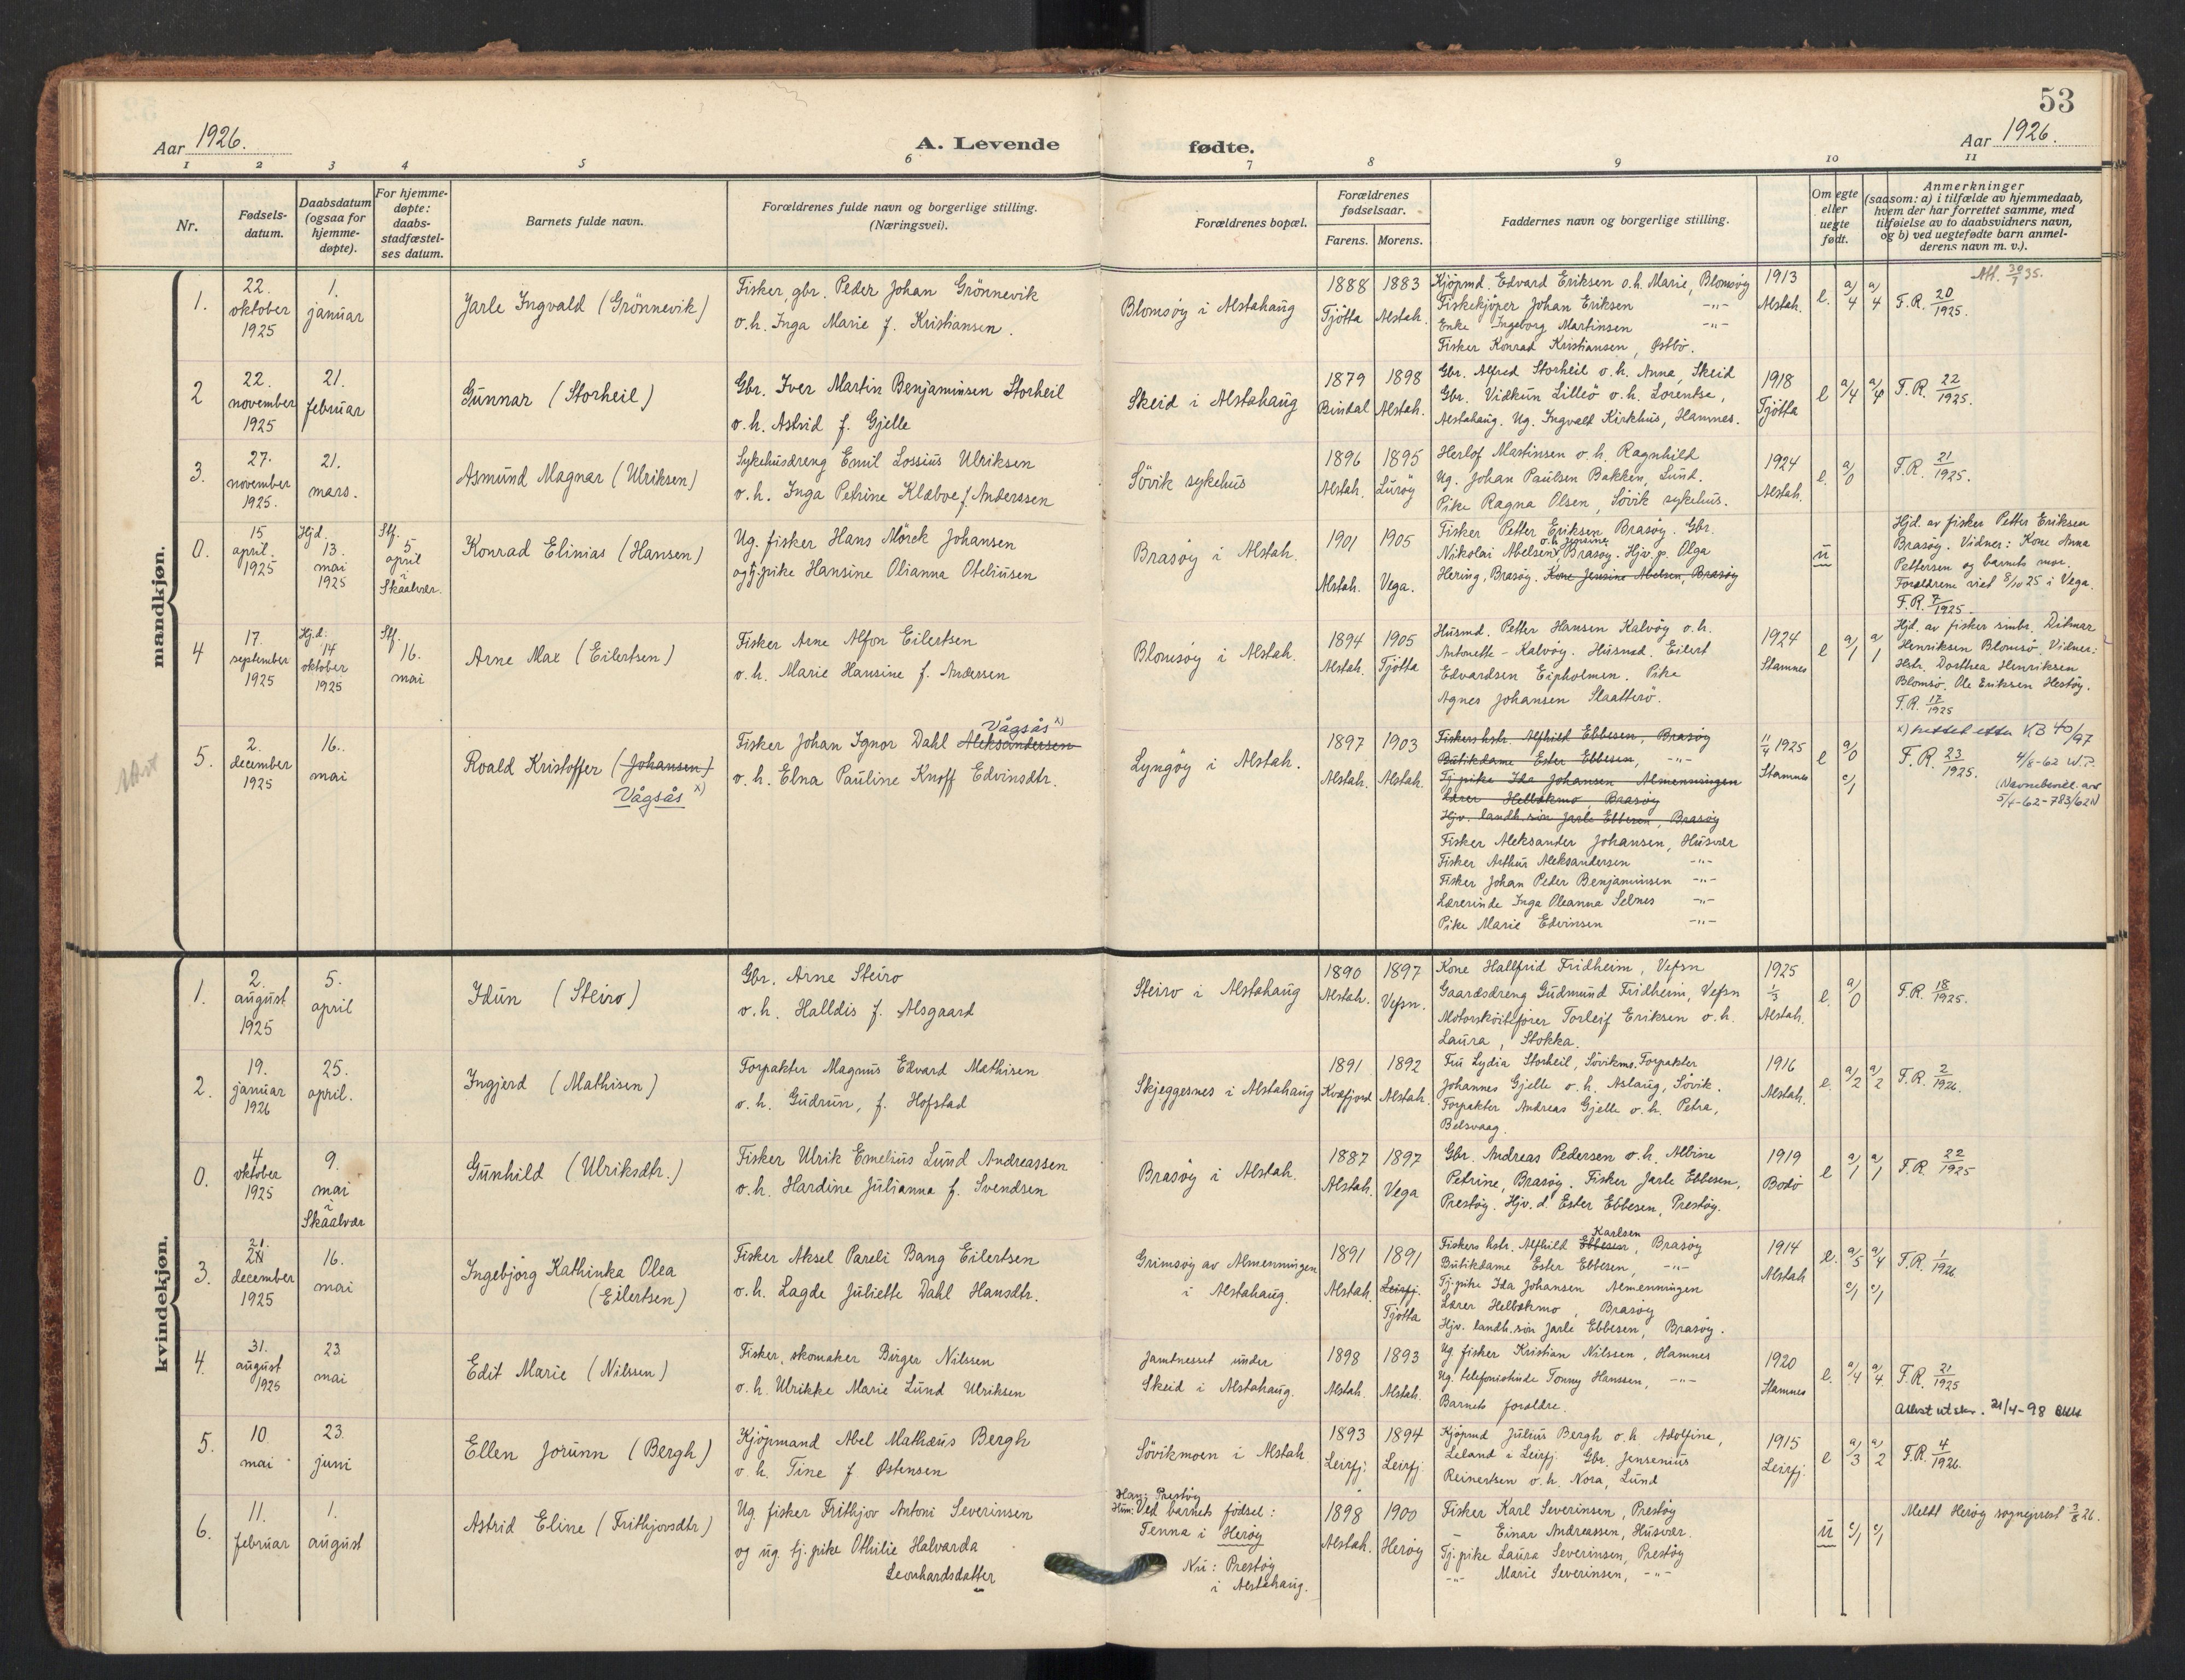 53
Aar 1926.
A. Levende
fødte.
Aar 1926.
1 2 3 4 5 6 7 8 9 10 11
Nr.
Fødsels-
datum.
Daabsdatum
(ogsaa for
hjemme-
døpte).
For hjemme-
døpte:
daabs-
stadfæstel-
ses datum.
Barnets fulde navn.
Forældrenes fulde navn og borgerlige stilling.
(Næringsvei).
Forældrenes bopæl.
Forældrenes
fødselsaar.
Farens. Morens.
Faddernes navn og borgerlige stilling.
Om egte
eller
uegte
født.
Anmerkninger
(saasom: a) i tilfælde av hjemmedaab,
hvem der har forrettet samme, med
tilføielse av to daabsvidners navn,
og b) ved uegtefødte barn anmel-
derens navn m. v.).
mandkjøn.
1.
22.
oktober
1925
1.
januar
Jarle Ingvald (Grönnevik)
Fisker, gbr. Peder Johan Grönnevik
o.h. Inga Marie f. Kristiansen.
Blomsøy i Alstahaug
1888
Tjötta
1883
Alstah.
Kjöpmd. Edvard Eriksen o.h. Marie, Blomsøy
Fiskekjöper Johan Eriksen -"-
Enke Ingeborg Martinsen -"-
Fisker Konrad Kristiansen, Østbö.
1913
Alstah.
e. a/4 a/4
Att. 30/7 35.
F.R. 20/1925.
2
22.
november
1925
21.
februar
Gunnar (Storheil)
Gbr. Iver Martin Benjaminsen Storheil
o.h. Astrid f. Gjelle
Skeid i Alstahaug
1879
Bindal
1898
Alstah.
Gbr. Alfred Storheil o.h. Anna, Skeid
Gbr. Vidkun Lilleö o.h. Lorentse,
Alstahaug. Ug. Ingvald Kirkhus, Hamnes.
1918
Tjötta
e a/4 a/4
F.R. 22/1925.
3.
27.
november
1925.
21.
mars.
Asmund Magnar (Ulriksen)
Sykehusdreng Emil Lossius Ulriksen
o.h. Inga Petrine Klæboe f. Anderssen
Sövik sykehus
1896
Alstah.
1895
Luröy
Herlof Martinsen o.h. Ragnhild
Ug. Johan Paulsen Bakken, Lund.
Pike Ragna Olsen, Sövik sykehus.
1924
Alstah.
e. a/0
F.R. 21/1925.
0.
15
april.
1925
Hjd.
13.
mai
1925
Stf.
5
april
i
Skaalvær.
Konrad Elinias (Hansen)
Ug. fisker Hans Mörck Johansen
og tj. pike Hansine Olianna Oteliusen
Brasøy i Alstah.
1901
Alstah.
1905
Vega.
Fisker Petter Eriksen Brasøy. Gbr.
o.h. Jensine
Nikolai Abelsen, Brasøy. Hjv. p. Olga
Hering, Brasøy. Kone Jensine Abelsen, Brasøy
u
Hjd. av fisker Petter Eriksen
Brasøy. Vidner: Kone Anna
Pettersen og barnets mor.
Forældrene viet 8/10 25 i Vega.
F.R. 7/1925.
4
17.
september
1925
Hj.d.
14
oktober
1925
Stf.
16.
mai
Arne Max (Eilertsen)
Fisker Arne Alfon Eilertsen
o.h. Marie Hansine f. Andersen
Blomsøy i Alstah.
1894
Alstah.
1905
Tjötta
Husmd. Petter Hansen Kalvöy o.h.
Antonette - Kalvöy. Husmd. Eilert
Edvardsen Eipholmen. Pike
Agnes Johansen Slaatterö.
1924
Stamnes
e a/1 a/1
Hjd. av fisker smbr. Ditmar
Henriksen Blomsö. Vidner:
Hstr. Dorthea Henriksen
Blomsö. Ole Eriksen Hestöy.
F.R. 17/1925
5.
2.
december
1925
16.
mai
Roald Kristoffer (Johansen)
Vågsås x)
Vågsås x)
Fisker Johan Ignor Dahl Aleksandersen
o.h. Elna Pauline Knoff Edvinsdtr.
Lyngöy i Alstah.
1897
Alstah.
1903
Alstah.
Fiskers hstr. Alfhild Ebbesen, Brasøy
Butikdame Ester Ebbesen, -"-
Tj. pike Ida Johansen Almenningen
Lærer Helbækmo, Brasøy
Hjv. landh. sön Jarle Ebbesen, Brasøy
Fisker Aleksander Johansen, Husvær
Fisker Arthur Aleksandersen -"-
Fisker Johan Peder Benjaminsen -"-
Lærerinde Inga Oleanna Selnes -"-
Pike Marie Edvinsen -"-
11/4 1925
Stamnes
e a/0 c/1
x) rettet etter KB 40/97
F.R. 23/1925.
4/8-62 W.P.
(Navnebevill. av
5/4-62-783/62 N)
kvindekjøn.
1.
2.
august
1925
5.
april
Idun (Steiro)
Gbr. Arne Steiro
o.h. Halldis f. Alsgaard
Steiro i Alstahaug
1890
Alstah.
1897
Vefsn.
Kone Hallfrid Fridheim, Vefsn
Gaardsdreng Gudmund Fridheim, Vefsn
Motorsköitefører Torleif Eriksen o.h.
Laura, Stokka.
1925
1/3
Alstah.
e. a/0
F.R. 18/1925.
2.
19.
januar
1926
25.
april.
Ingjerd (Mathisen)
Forpakter Magnus Edvard Mathisen
o.h. Gudrun, f. Hofstad
Skjeggesnes i Alstahaug
1891
Kvæfjord
1892
Alstah.
Fru Lydia Storheil, Sövikmo. Forpakter
Johannes Gjelle o.h. Aslaug, Sövik.
Forpakter Andreas Gjelle o.h. Petra,
Belsvaag.
1916
Alstah.
e. a/2 a/2
F.R. 2/1926.
0.
4
oktober
1925
9.
mai
i
Skaalvær
Gunhild (Ulriksdtr.)
Fisker Ulrik Emelius Lund Andreassen
o.h. Hardine Julianna f. Svendsen
Brasøy i Alstah.
1887
Alstah.
1897
Vega
Gbr. Andreas Pedersen o.h. Albine
Petrine, Brasøy. Fisker Jarle Ebbesen,
Prestøy. Hjv. d. Ester Ebbesen, Prestøy.
1919
Bodö
e a/1 a/1
F.R. 22/1925
3.
21.
december
1925
16.
mai
Ingebjörg Kathinka Olea
(Eilertsen)
Fisker Aksel Pareli Bang Eilertsen
o.h. Lagde Juliette Dahl Hansdtr.
Grimsøy av Almenningen
i Alstahaug.
1891
Alstah.
1891
Leirfj.
Tjötta
Karlsen
Fiskers hstr. Alfhild Ebbesen, Brasøy
Butikdame Ester Ebbesen, -"-
Tj. pike Ida Johansen Almenningen
Lærer Helbækmo, Brasøy
Hjv. landh. sön Jarle Ebbesen, Brasøy.
1914
Alstah
e. a/5 a/4 c/1 c/1
F.R. 1/1926
4.
31.
august
1925
23
mai
Edit Marie (Nilssen)
Fisker, skomaker Birger Nilssen
o.h. Ulrikke Marie Lund Ulriksen
Jamtnesset under
Skeid i Alstahaug.
1898
Alstah.
1893
Alstah.
Ug. fisker Kristian Nilssen, Hamnes
Ug. telefonistinde Tonny Hanssen, -"-
Barnets forældre.
1920
Stamnes
e. a/4 a/4
F.R. 21/1925
Attest utskr. 21/4-98
5.
10
mai
23.
juni
Ellen Jorunn (Bergh)
Kjöpmand Abel Mathæus Bergh
o.h. Tine f. Østensen
Sövikmoen i Alstah
1893
Leirfj.
1894
Leirfj.
Kjöpmd Julius Bergh o.h. Adolfine,
Leland i Leirfj. Gbr. Jensenius
Reinertsen o.h. Nora, Lund
1915
Leirfj.
e a/3 a/2
F.R. 4/1926.
6.
11.
februar
1.
august
Astrid Eline (Frithjovsdtr)
Ug. fisker Frithjov Antoni Severinsen
og ug. tj. pike Othilie Halvarda
Leonhardsdatter
Han: Prestøy
Hun: Ved barnets födsel:
Tenna i Herøy
Nu: Prestøy
i Alstahaug.
1898
Alstah.
1900
Herøy
Fisker Karl Severinsen, Prestøy
- Einar Andreassen, Husvær.
Tj. pike Laura Severinsen, Prestøy
-"- Marie Severinsen, -"-
u c/1 c/1
Meldt Herøy sogneprest 3/8 26.